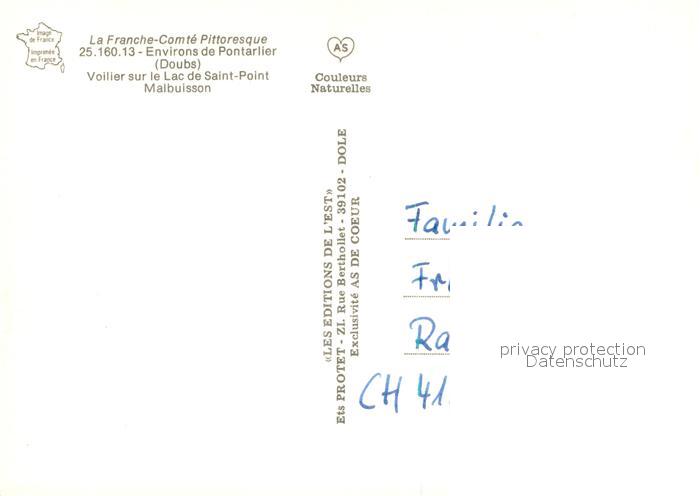 Image
de France
Imprimée
en France
La Franche-Comté Pittoresque
25.160.13 - Environs de Pontarlier
(Doubs)
Voilier sur le Lac de Saint-Point
Malbuisson
AS
Couleurs
Naturelles
«LES EDITIONS DE L'EST»
Ets PROTET - ZI. Rue Berthollet - 39102 - DOLE
Exclusivité AS DE COEUR
Familie
CH 41
privacy protection
Datenschutz